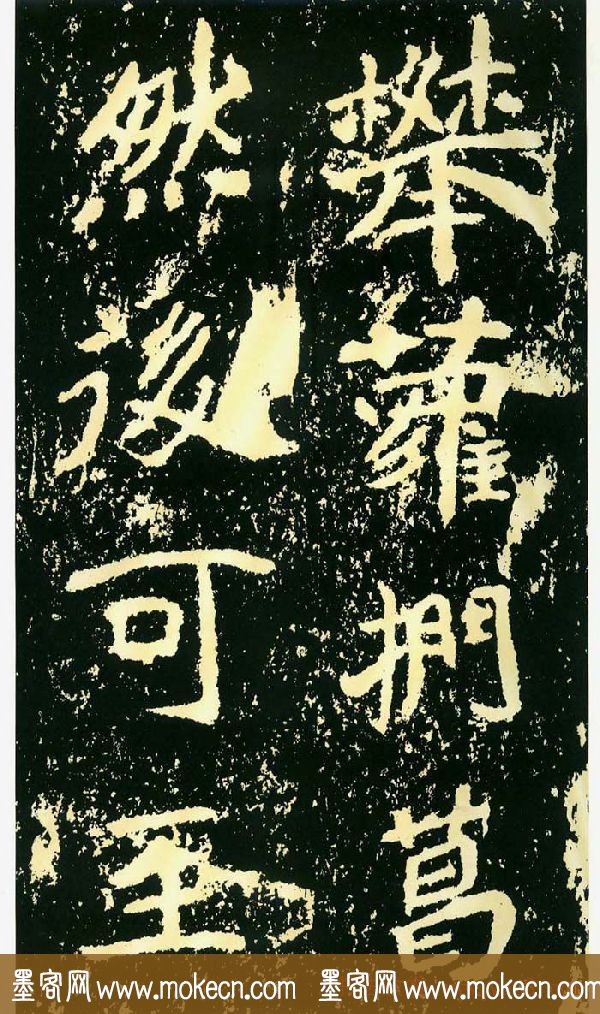 攀蘿捫葛
然後可至
墨客网 www.mokecn.com 墨客网 www.mokecn.com